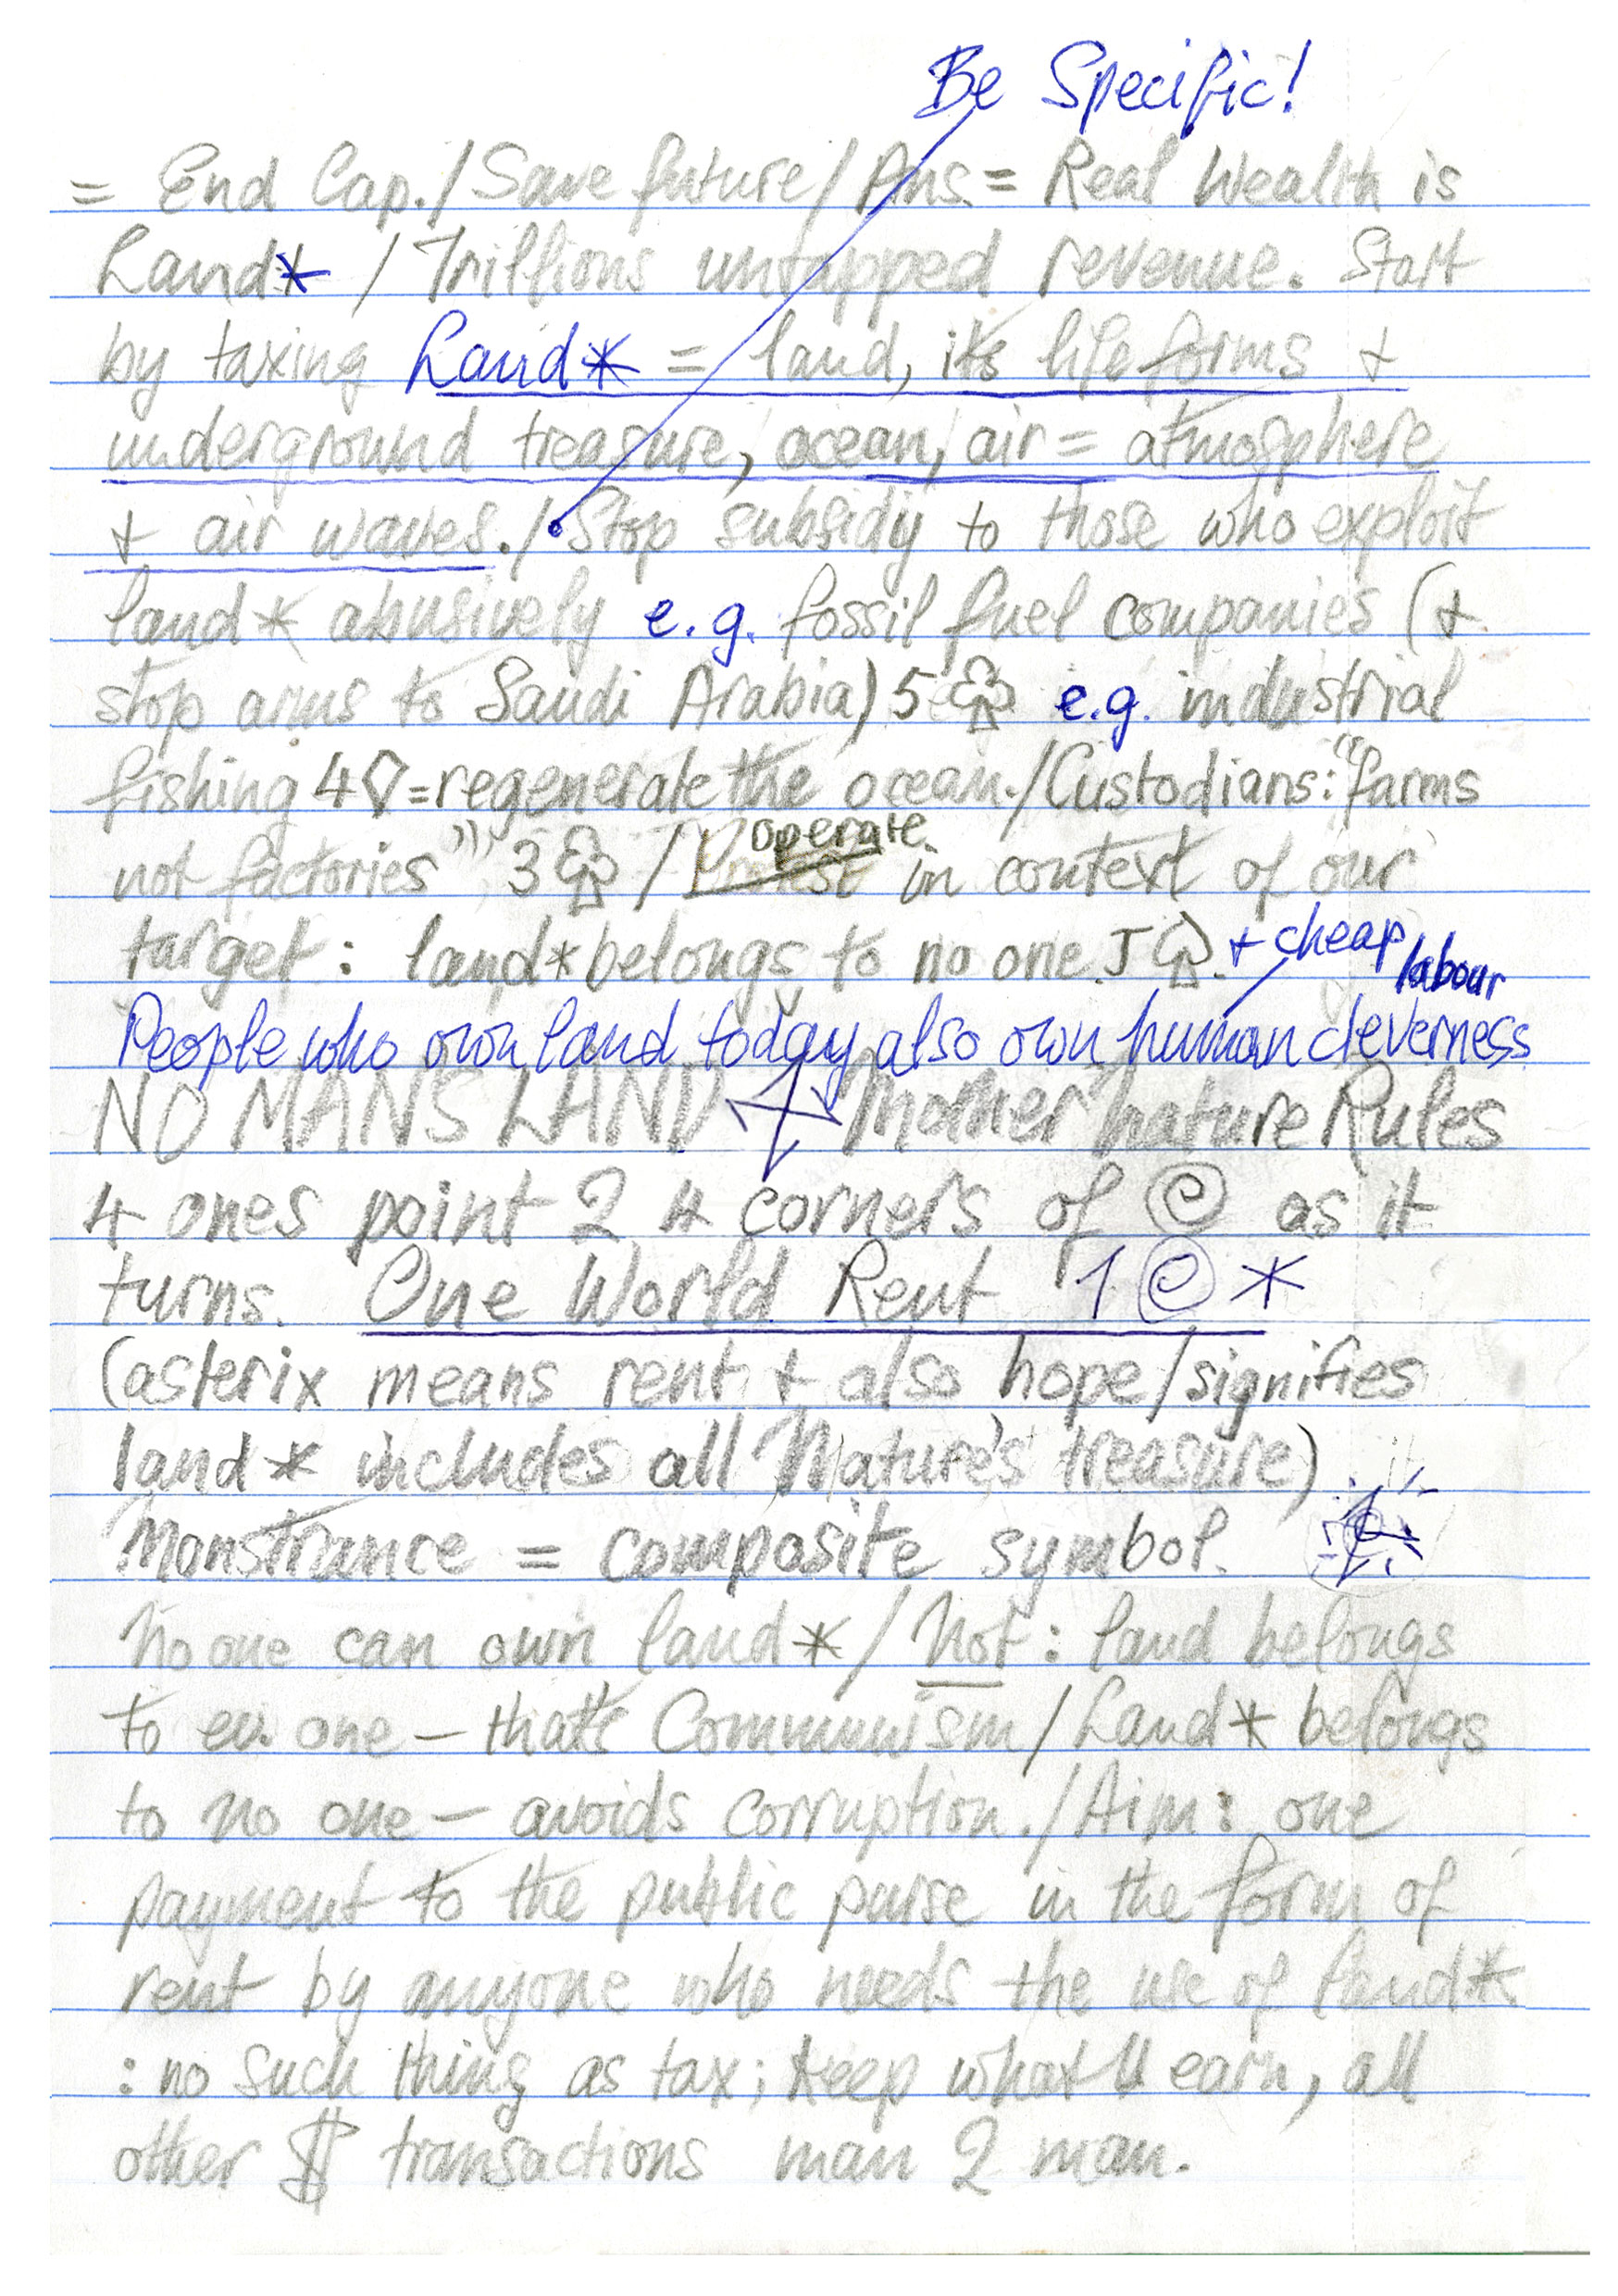 Be Specific!
= End Cap./Save future/Ans.= Real Wealth is
Land* / Trillions untapped revenue. Start
by taxing Land* = land, its life forms +
underground treasure, ocean, air = atmosphere
+ air waves./Stop subsidy to those who exploit
land* abusively e.g. fossil fuel companies (+
stop arms to Saudi Arabia) 5♧ e.g. industrial
fishing 4♢=regenerate the ocean./Custodians: "farms
not factories" 3♧ / Protest operate in context of our
target: land* belongs to no one J♤. + cheap labour
People who own land today also own human cleverness
NO MANS LAND Mother Nature Rules
4 ones point 2 4 corners of @ as it
turns. One World Rent 1@*
(asterix means rent + also hope/signifies
land* includes all Nature's treasure)
Monstrance = composite symbol.
No one can own land*/Not: land belongs
to ev. one – that's Communism/Land* belongs
to no one – avoids corruption./Aim: one
payment to the public purse in the form of
rent by anyone who needs the use of land*
: no such thing as tax; keep what U earn, all
other $ transactions man 2 man.